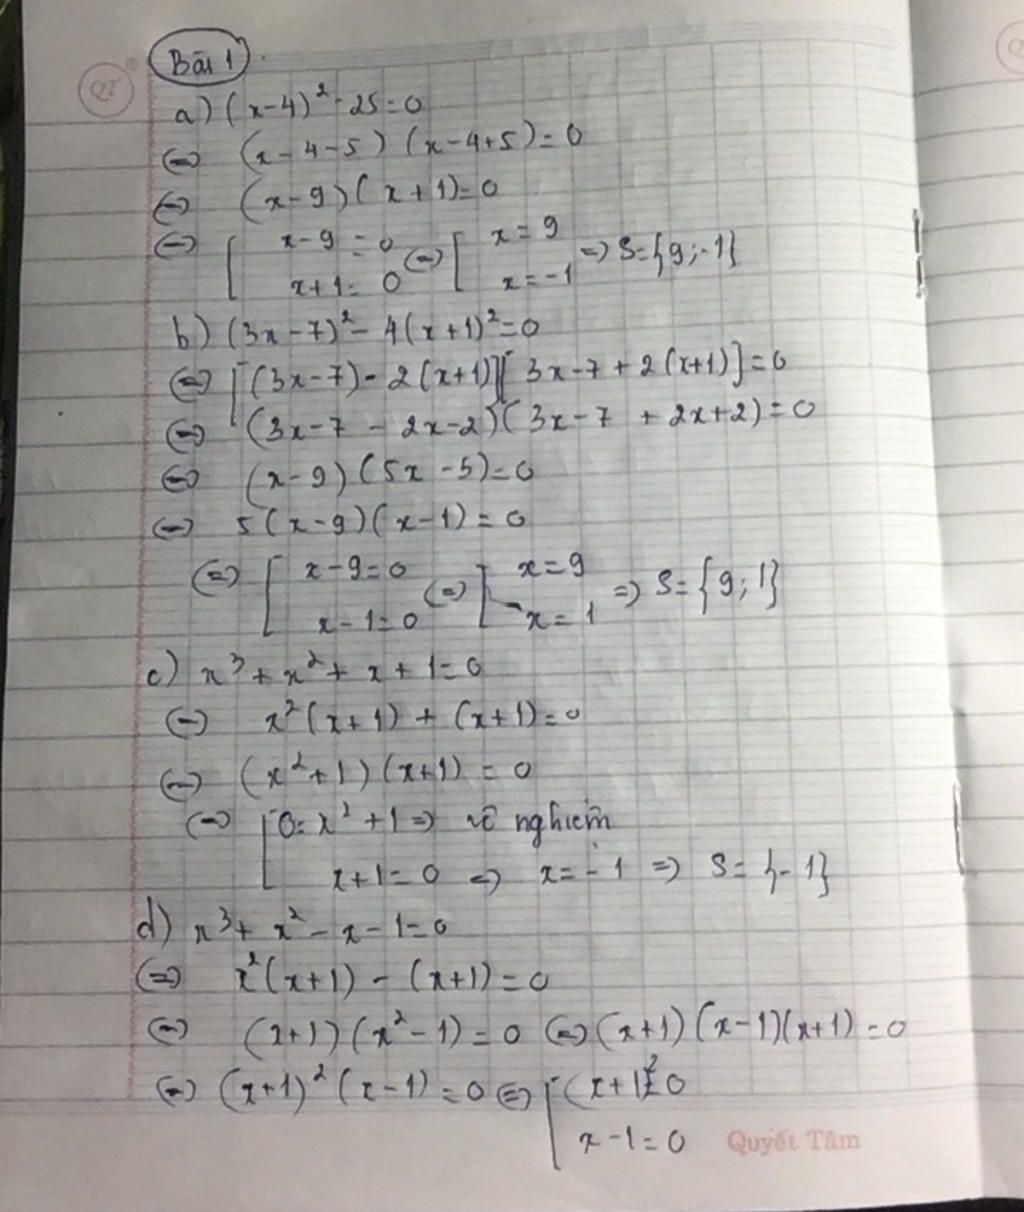 Bài 1
QT
a) (x-4)² - 25 = 0
⇔ (x-4-5) (x-4+5) = 0
⇔ (x-9) (x+1) = 0
⇔ [ x-9 = 0 ⇔ [ x = 9 ⇒ S = {9; -1}
x+1 = 0 x = -1
b) (3x-7)² - 4(x+1)² = 0
⇔ [(3x-7) - 2(x+1)][3x-7 + 2(x+1)] = 0
⇔ (3x-7 - 2x-2)(3x-7 + 2x+2) = 0
⇔ (x-9) (5x-5) = 0
⇔ 5(x-9)(x-1) = 0
⇔ [ x-9 = 0 ⇔ [ x = 9 ⇒ S = {9; 1}
x-1 = 0 x = 1
c) x³ + x² + x + 1 = 0
⇔ x²(x+1) + (x+1) = 0
⇔ (x²+1)(x+1) = 0
⇔ [ 0 = x² + 1 ⇒ vô nghiệm
x+1 = 0 ⇒ x = -1 ⇒ S = {-1}
d) x³ + x² - x - 1 = 0
⇔ x²(x+1) - (x+1) = 0
⇔ (x+1)(x²-1) = 0 ⇔ (x+1)(x-1)(x+1) = 0
⇔ (x+1)²(x-1) = 0 ⇔ [ (x+1)² = 0
x-1 = 0
Quyết Tâm